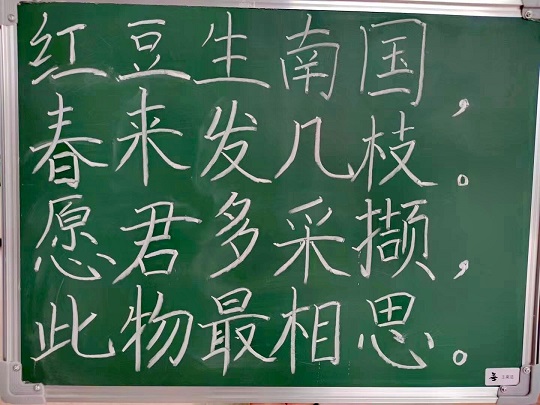 红豆生南国，
春来发几枝。
愿君多采撷，
此物最相思。